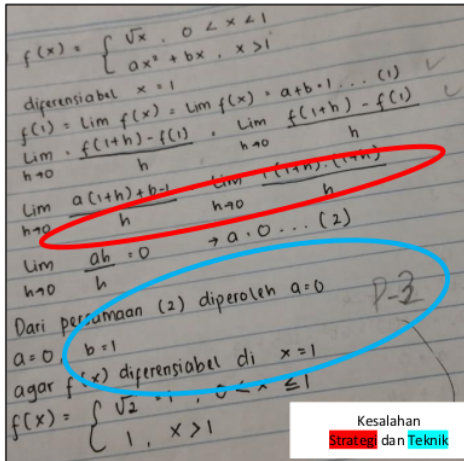 f(x) = { √x , 0 < x < 1
ax² + bx , x > 1
diferensiabel x = 1
f(1) = Lim f(x) = Lim f(x) = a+b = 1 ... (1)
Lim h→0 f(1+h) - f(1) / h = Lim h→0 f(1+h) - f(1) / h
Lim h→0 a(1+h) + b-1 / h Lim h→0 (1+h) - (1+h) / h
Lim h→0 ah / h = 0 → a = 0 ... (2)
Dari persamaan (2) diperoleh a=0
a=0, b=1
agar f(x) diferensiabel di x=1
f(x) = { √2 , 0 < x ≤ 1
1 , x > 1
Kesalahan
Strategi dan Teknik